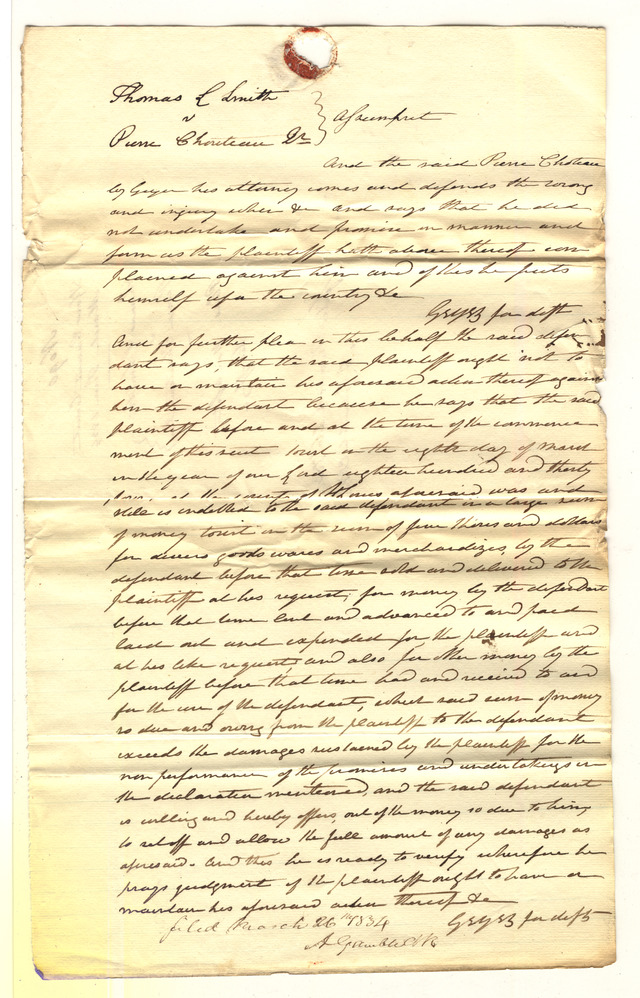 Thomas L Smith
v
Pierre Chouteau Dr
Assumpsit
And the said Pierre Choteau
by Geyer his attorney comes and defends the wrong
and injury when &c and says that he did
not undertake and promise in manner and
form as the plaintiff hath above thereof com
plained against him and of this he puts
himself upon the country &c
Geyer for deft
And for further plea in this behalf the said defen
dant says, that the said plaintiff ought not to
have or maintain his aforesaid action thereof against
him the defendant because he says that the said
plaintiff before and at the time of the commence
ment of this suit towit on the eighth day of March
in the year of our Lord eighteen hundred and thirty
four at the county of St Louis aforesaid was and
still is indebted to the said defendant in a large sum
of money towit in the sum of five thousand dollars
for divers goods wares and merchandizes, by the
defendant before that time sold and delivered to the
plaintiff at his request, for money by the defendant
before that time lent and advanced to and paid
laid out and expended for the plaintiff and
at his like request, and also for other money by the
plaintiff before that time had and received to and
for the use of the defendant, which said sum of money
so due and owing from the plaintiff to the defendant
exceeds the damages sustained by the plaintiff for the
non performance of the promises and undertakings in
the declaration mentioned, and the said defendant
is willing and hereby offers, out of the money so due to him,
to set off and allow the full amount of any damages as
aforesaid. And this he is ready to verify wherefore he
prays judgment if the plaintiff ought to have or
maintain his aforesaid action thereof &c
Geyer for deft
filed March 26th 1834
A Gamble Clk